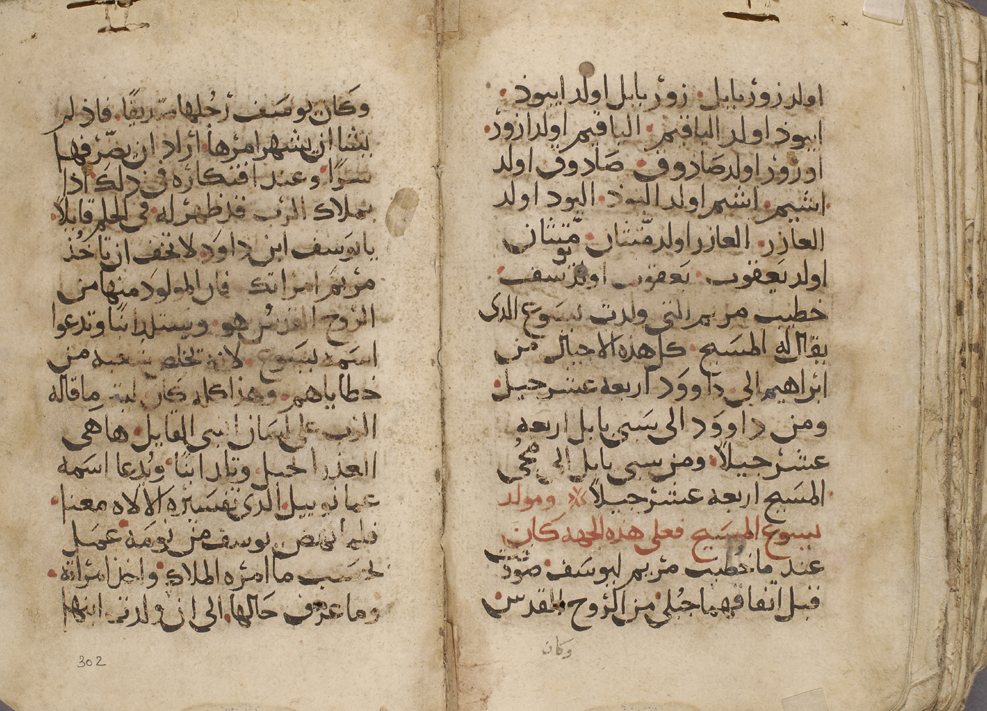 اولد زوربابل زوربابل اولد ابيود
ابيود اولد الياقيم الياقيم اولد ازور
ازور اولد صادوق صادوق اولد
اشيم اشيم اولد اليود اليود اولد
العازر العازر اولد متثان متثان
اولد يعقوب يعقوب اولد يوسف
خطيب مريم التي ولدت يسوع الدي
يقال له المسيح كل هده الاجيال من
ابراهيم الى داوود اربعه عشر جيل
ومن داوود الى سبي بابل اربعه
عشر جيلا ومن سبي بابل الى مجي
المسيح اربعه عشر جيلا ومولد
يسوع المسيح فعلى هده الجهه كان
عند ما خطبت مريم ليوسف
قبل اتفاقهما حبلى من الروح المقدس
وكان
وكان يوسف رجلها فاذ لم
يشا ان يشهر امرها اراد ان يصرفها
سرا وعند افتكاره في دلك اذا
بملاك الرب قد ظهر له في الحلم قايلا
يا يوسف ابن داود لا تخف ان تاخذ
مريم امراتك فان المولود منها من
الروح القدس هو وستلد ابنا وتدعوا
اسمه يسوع لانه يخلص شعبه من
خطاياهم وهدا كله كان ليتم ما قاله
الرب على لسان النبي القايل ها هي
العذرا تحبل وتلد ابنا ويدعا اسمه
عمانوييل الدي تفسيره الالاه معنا
فلما انهض يوسف من نومه عمل
بحسب ما امره الملاك واخد امراته
وما عرف حالها الى ان ولدت ابنها
302